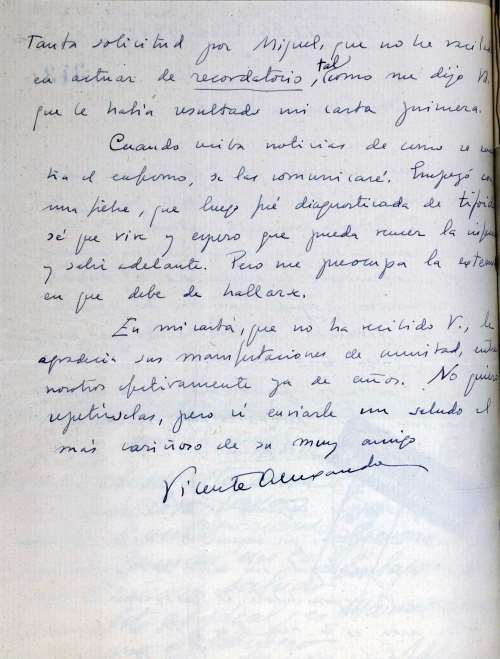 Tanta solicitud por Miguel, que no he vacila
en actuar de recordatorio, tal como me dijo V.
que le había resultado mi carta primera.
Cuando reciba noticias de como se encuen
tra el enfermo, se las comunicaré. Empezó con
una fiebre, que luego fué diagnosticada de tifoide
sé que vive y espero que pueda vencer la
y salir adelante. Pero me preocupa la
en que debe de hallarse.
En mi carta, que no ha recibido V., le
agradecía sus manifestaciones de amistad, entre
nosotros efectivamente ya de años. No quiero
repetírselas, pero sí enviarle un saludo el
más cariñoso de su muy amigo
Vicente Aleixandre